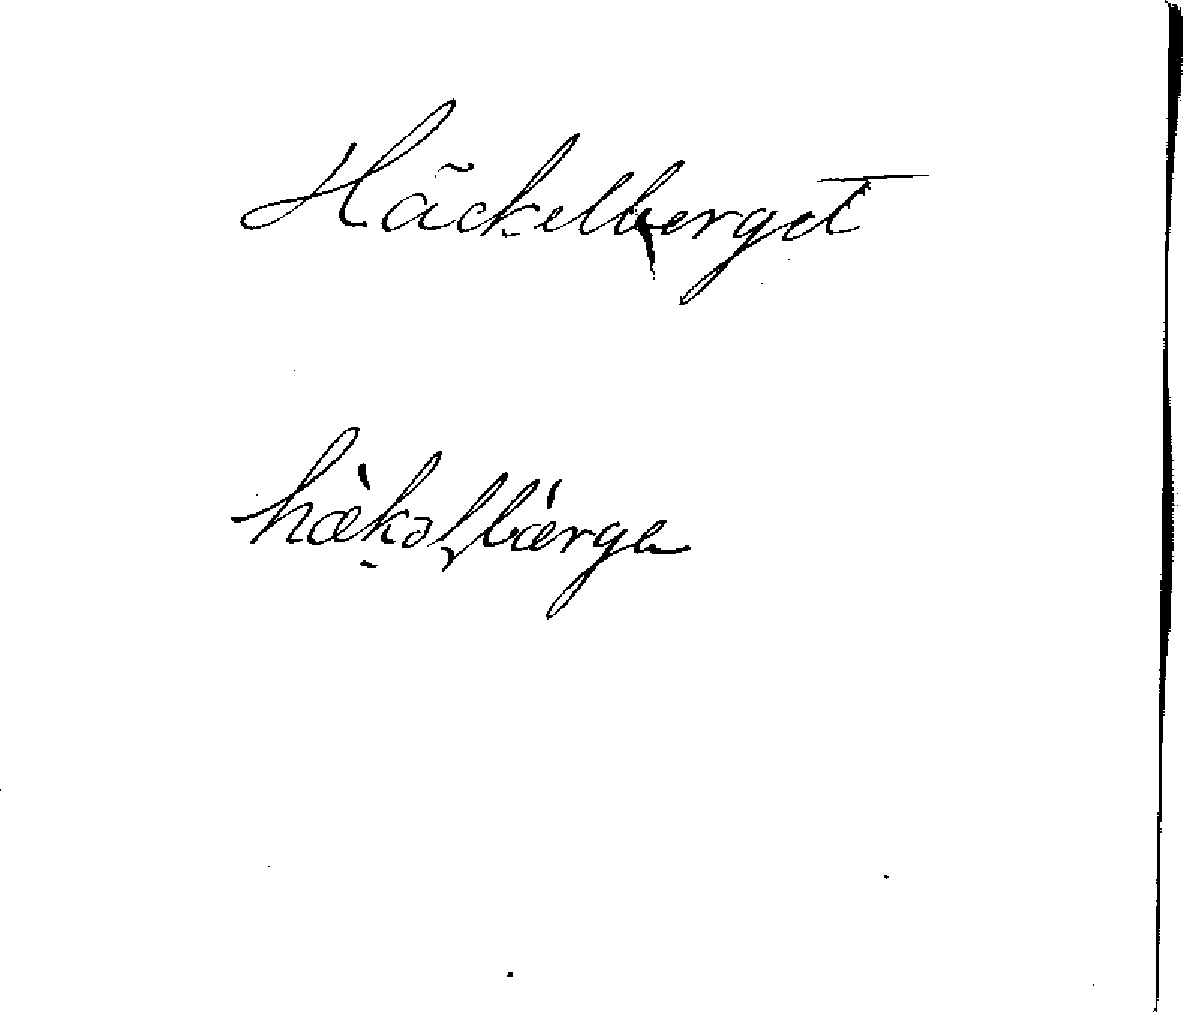 Häckelberget
hæ̀kəlbærge